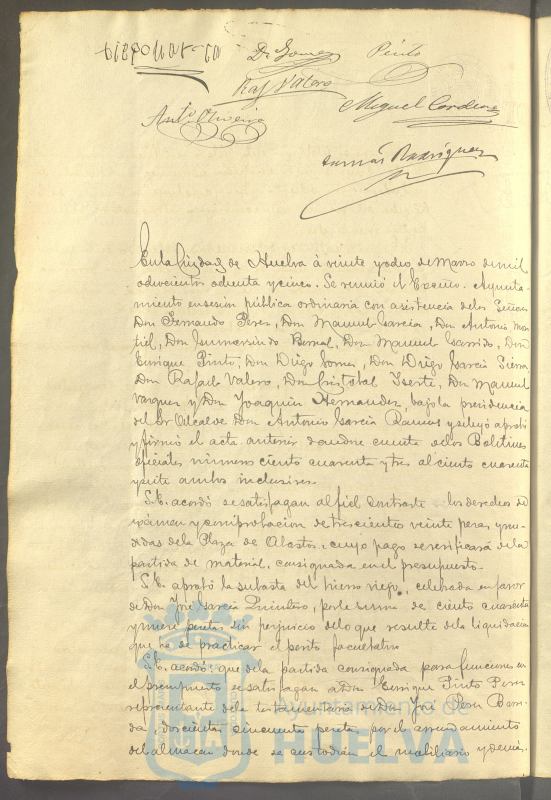 D. Gomez Pinto
Raf. Valero
Miguel Cordero
Antº Oliveira
Tomás Rodríguez
En la Ciudad de Huelva á veinte y ocho de Marzo de mil
ochocientos ochenta y cinco. Se reunió el Excmo. Ayunta-
miento en sesion pública ordinaria con asistencia de los Señores
Don Fernando Perez, Don Manuel Garcia, Don Antonio
Don Gumersindo Bernal, Don Manuel Garrido, Don
Enrique Pinto, Don Diego Gomez, Don Diego Garcia Sierra
Don Rafael Valero, Don Cristobal Iserte, Don Manuel
Vazquez y Don Joaquin Hernandez, bajo la presidencia
del Sr Alcalde Don Antonio Garcia Ramos y se leyó aprobó
y firmó el acta anterior dandose cuenta de los Boletines
oficiales números ciento cuarenta y tres al ciento cuarenta
y siete ambos inclusives.
S. E. acordó se satisfagan al fiel contraste los derechos de
exámen y comprobacion de trescientas veinte pesas y me-
didas de la Plaza de Abastos, cuyo pago se verificará de la
partida de material, consignada en el presupuesto.
S. E. aprobó la subasta del hierro viejo, celebrada en favor
de Don José Garcia por la suma de ciento cuarenta
y nueve pesetas sin perjuicio de lo que resulte de la liquidacion
que ha de practicar el perito facultativo.
S. E. acordó: que de la partida consignada para funciones en
el presupuesto se satisfagan a Don Enrique Pinto Perez
representante de la testamentaria de Don José Perez Barri-
da, doscientas cincuenta pesetas por el arrendamiento
del almacen donde se custodian el mobiliario y demás
Ayuntamiento de
HUELVA